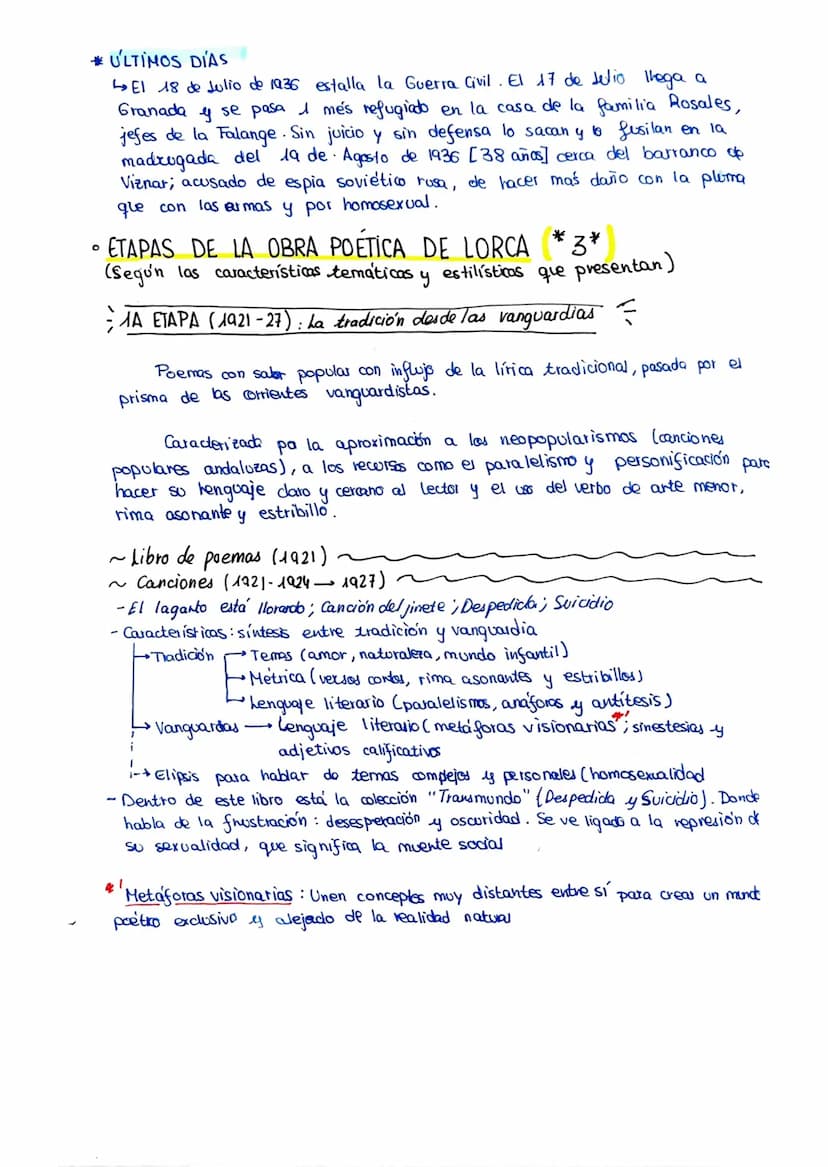 * ÚLTIMOS DÍAS
↳ El 18 de Julio de 1936 estalla la Guerra Civil. El 17 de Julio llega a
Granada y se pasa 1 més refugiado en la casa de la familia Rosales,
jefes de la Falange. Sin juicio y sin defensa lo sacan y lo fusilan en la
madrugada del 19 de Agosto de 1936 [38 años] cerca del barranco de
Viznar; acusado de espia soviético rusa, de hacer más daño con la pluma
que con las armas y por homosexual.
° ETAPAS DE LA OBRA POÉTICA DE LORCA (*3*)
(Según las características temáticas y estilísticas que presentan)
1A ETAPA (1921-27): La tradición desde las vanguardias
Poemas con sabor popular con influjo de la lírica tradicional, pasada por el
prisma de las corrientes vanguardistas.
Caracterizada por la aproximación a los neopopularismos (canciones
populares andaluzas), a los recursos como el paralelismo y personificación para
hacer su lenguaje claro y cercano al lector y el uso del verbo de arte menor,
rima asonante y estribillo.
~ Libro de poemas (1921)
~ Canciones (1921-1924 → 1927)
- El lagarto está llorando; Canción del jinete; Despedida; Suicidio
- Características: síntesis entre tradición y vanguardia
→ Tradición → Temas (amor, naturaleza, mundo infantil)
→ Métrica (versos cortos, rima asonantes y estribillos)
→ Lenguaje literario (paralelismos, anáforas y antítesis)
→ Vanguardas → Lenguaje literario (metáforas visionarias*'; sinestesias y
adjetivos calificativos
→ Elipsis para hablar de temas complejos y personales (homosexualidad
- Dentro de este libro está la colección "Trasmundo" (Despedida y Suicidio). Donde
habla de la frustración: desesperación y oscuridad. Se ve ligado a la represión de
su sexualidad, que significa la muerte social
*' Metáforas visionarias: Unen conceptos muy distantes entre sí para crear un mund
poético exclusivo y alejado de la realidad natural